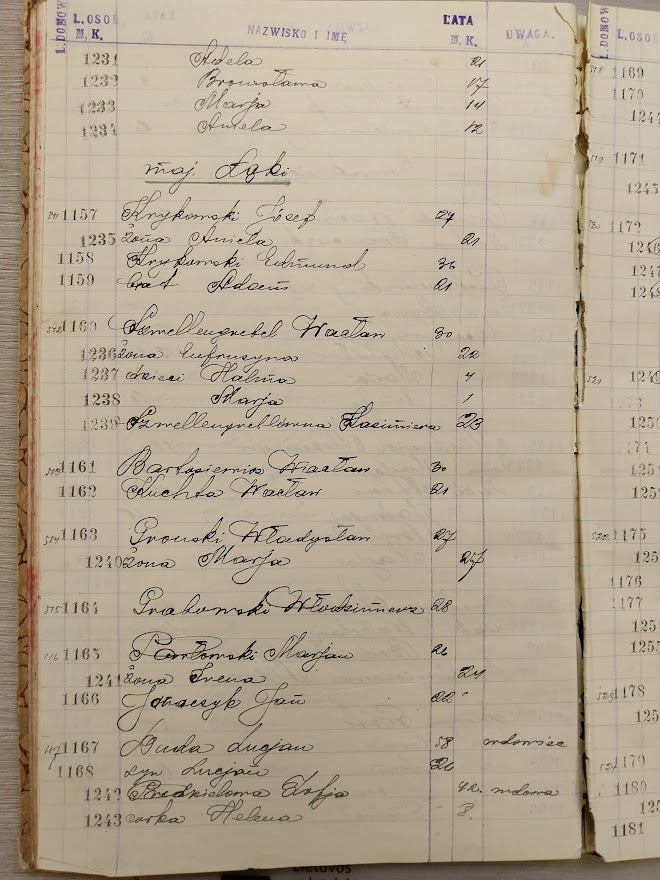 L. DOMOW. L. OSOB M. K. NAZWISKO I IMĘ LATA M. K. UWAGA.
1231 Adela 21
1232 Bronisława 17
1233 Marja 14
1234 Aniela 12
maj. Łąki
1157 Krykowski Józef 27
1235 żona Aniela 21
1158 Krykowski Edmund 36
1159 brat Adam 21
1160 Szwellengrebel Wacław 30
1236 żona Eufruzyna 22
1237 dzieci Halina 4
1238 Marja 1
1239 Szwellengreblówna Kazimiera 23
1161 Wacław 30
1162 Kuchta Wacław 21
1163 Gronski Władysław 27
1240 żona Marja 27
1164 Grabowski Włodzimierz 28
1165 Pawłowski Marjan 26
1241 żona Irena 24
1166 Jan 22
1167 Duda Lucjan 58 wdowiec
1168 syn Lucjan 20
1242 Zofja 42. wdowa
1243 corka Helena 8.
L. DOMOW L. OSOB
1169
1170
1171
1172
1175
1176
1177
1178
1179
1180
1181